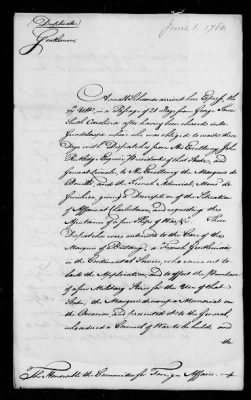 (Duplicate)
June 1. 1780
Gentlemen
A small Schooner arrived here Express, the
27 Ulto. in a Passage of 21 Days from George Town
South Carolina after having been chased into
Guadaloupe where she was obliged to wait three
Days with Dispatches from His Excellency John
Rutledge Esquire, President of that State, and
General Lincoln, to His Excellency the Marquis de
Bouillé and the French Admiral, Mons. de
Guichen giving a Description of the Situation
of Affairs at Charlestown, and requesting the
Assistance of a few Ships of War, &c. These
Dispatches were entrusted to the Care of the
Marquis of Brittany, a French Gentleman
in the Continental Service, who came out to
back the Application, and to effect the Purchase
of a few Military Stores for the Use of that
State; the Marquis drew up a Memorial on
the Occasion, and presented it to the General,
who ordered a Council of War to be held, and
the
The Honorable the Committee for Foreign Affairs